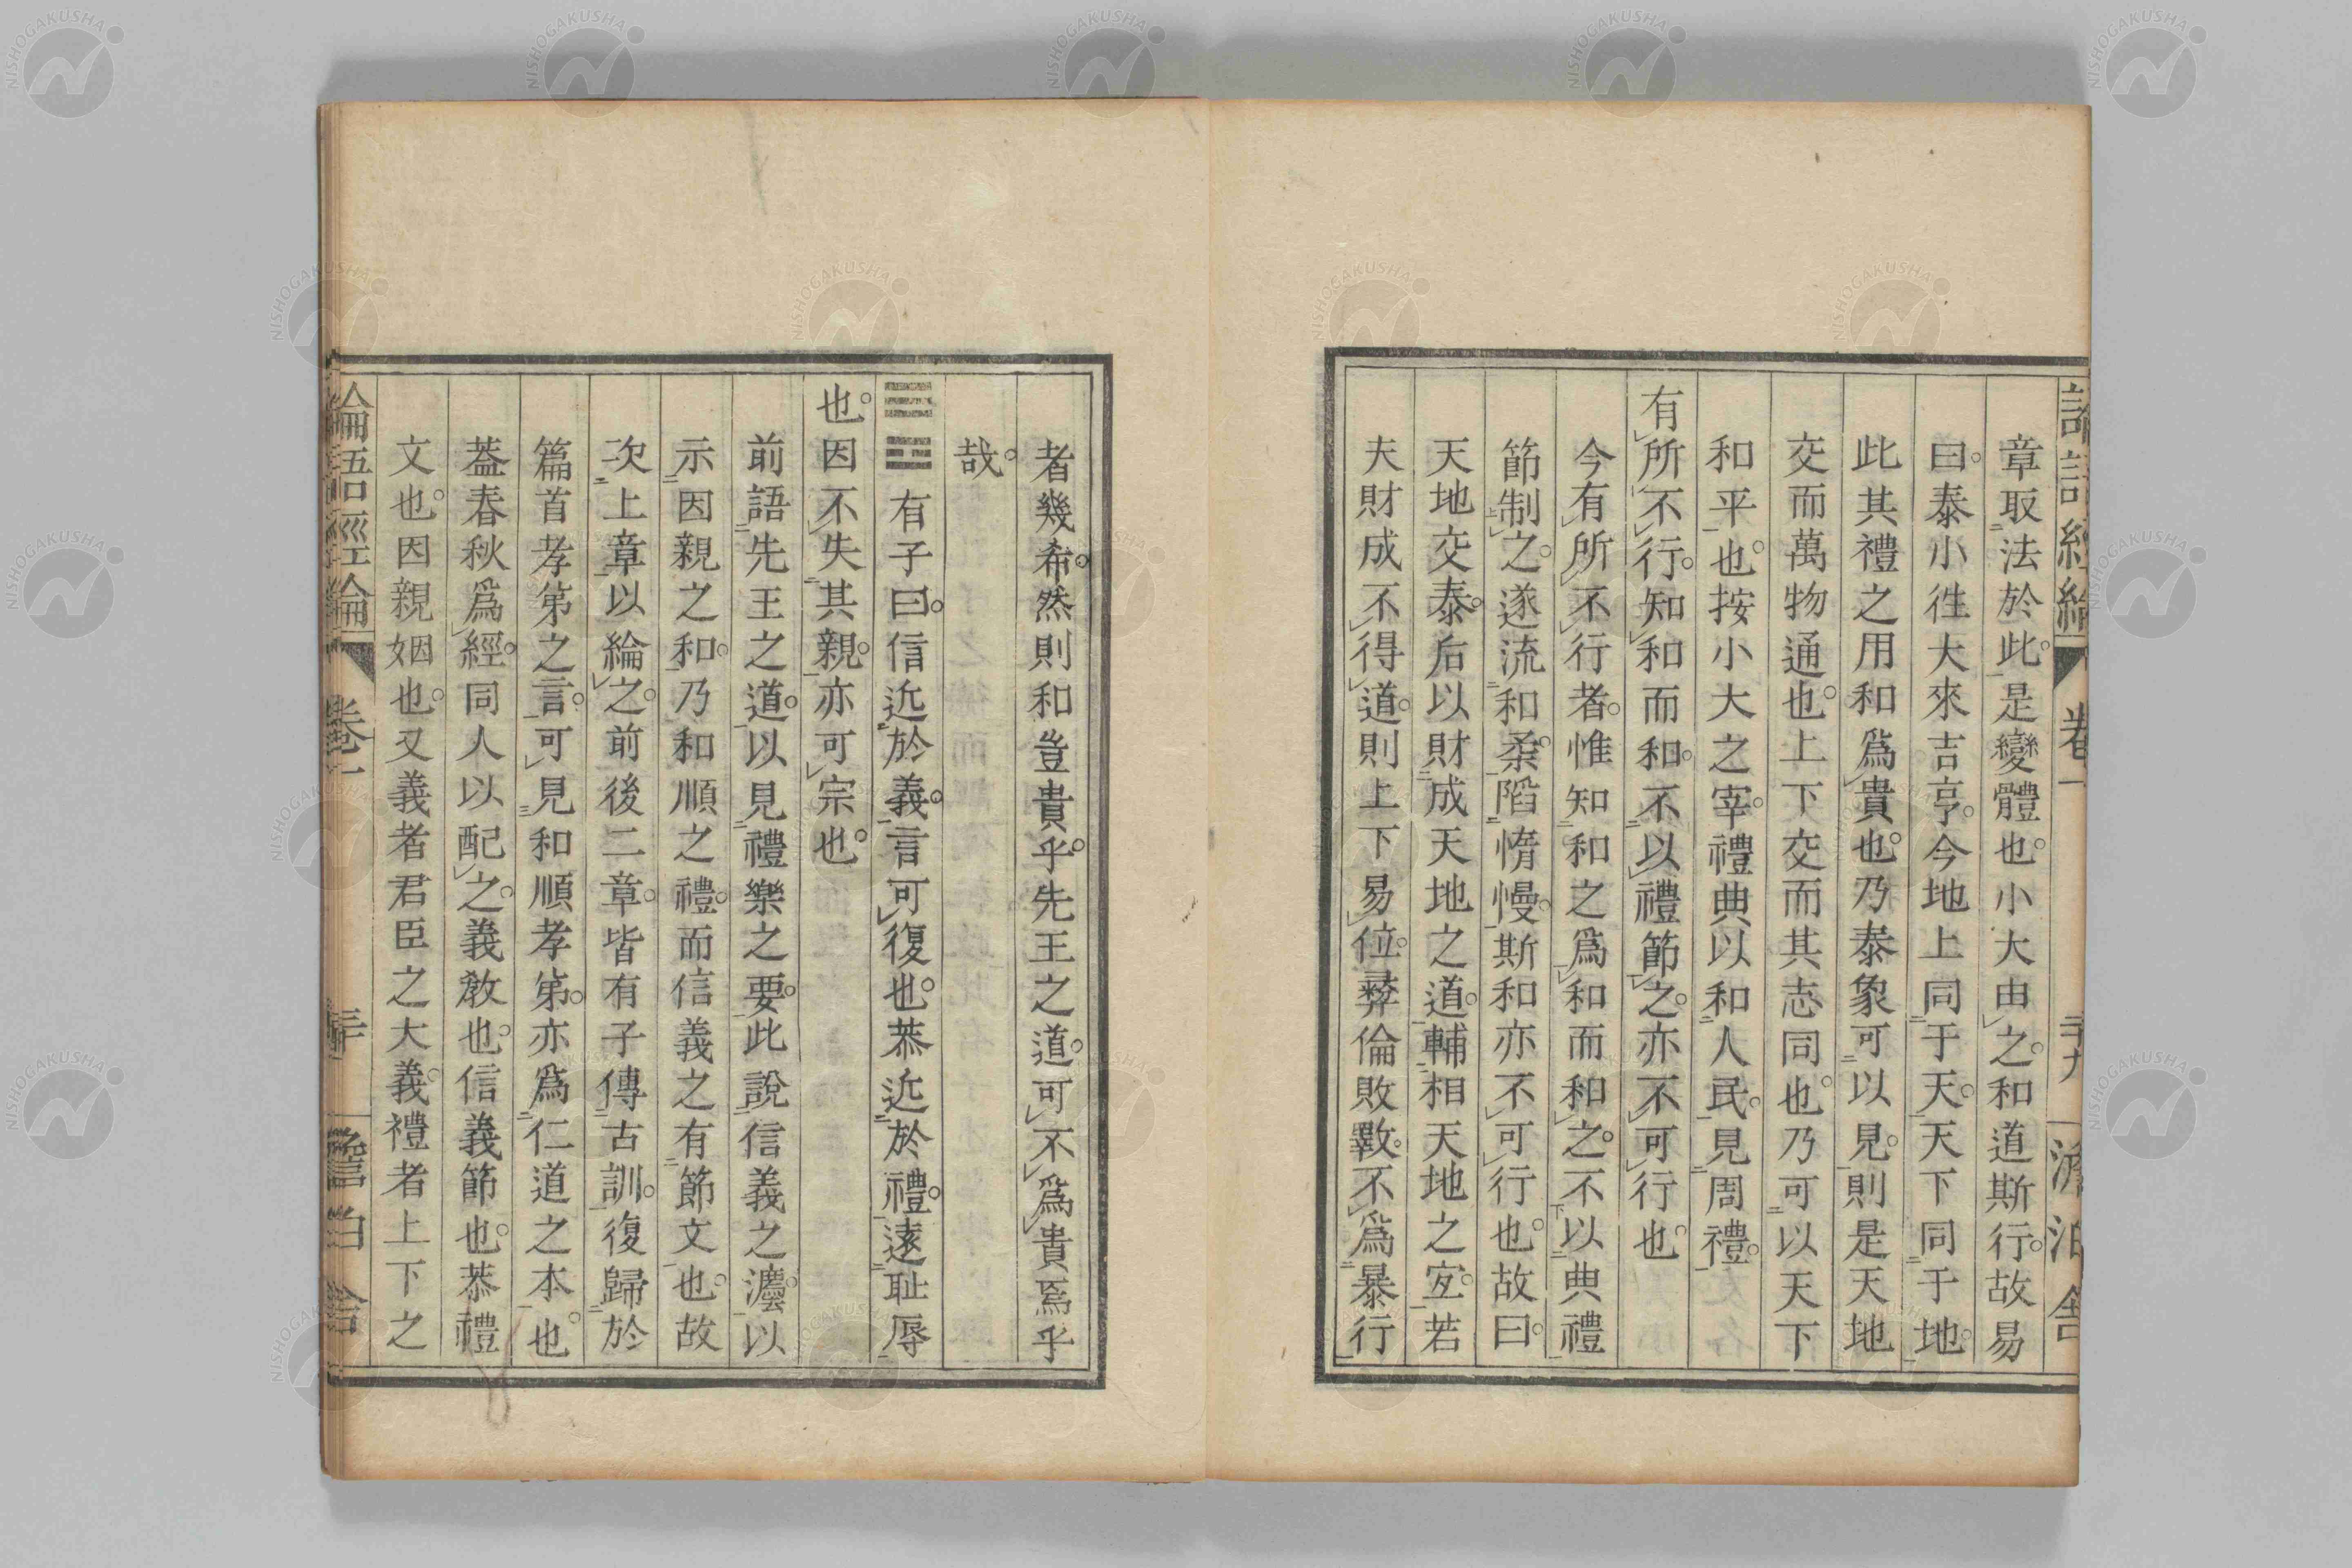 論語經綸 卷一 二十九 澹泊舍
章取法於此是變體也小大由之和道斯行故易
曰泰小徃大來吉亨今地上同于天天下同于地
此其禮之用和爲貴也乃泰象可以見則是天地
交而萬物通也上下交而其志同也乃可以天下
和平也按小大之宰禮典以和人民見周禮
有所不行知和而和不以禮節之亦不可行也
今有所不行者惟知和之爲和而和之不以典禮
節制之遂流和柔陷惰慢斯和亦不可行也故曰
天地交泰后以財成天地之道輔相天地之宜若
夫財成不得道則上下易位彝倫敗斁不爲暴行
者幾希然則和豈貴乎先王之道可不爲貴焉乎
哉
䷌有子曰信近於義言可復也恭近於禮遠耻辱
也因不失其親亦可宗也
前語先王之道以見禮樂之要此說信義之灋以
示因親之和乃和順之禮而信義之有節文也故
次上章以綸之前後二章皆有子傳古訓復歸於
篇首孝弟之言可見和順孝弟亦爲仁道之本也
葢春秋爲經同人以配之義教也信義節也恭禮
文也因親姻也又義者君臣之大義禮者上下之
論語經綸 卷一 三十 澹泊舍
NISHOGAKUSHA